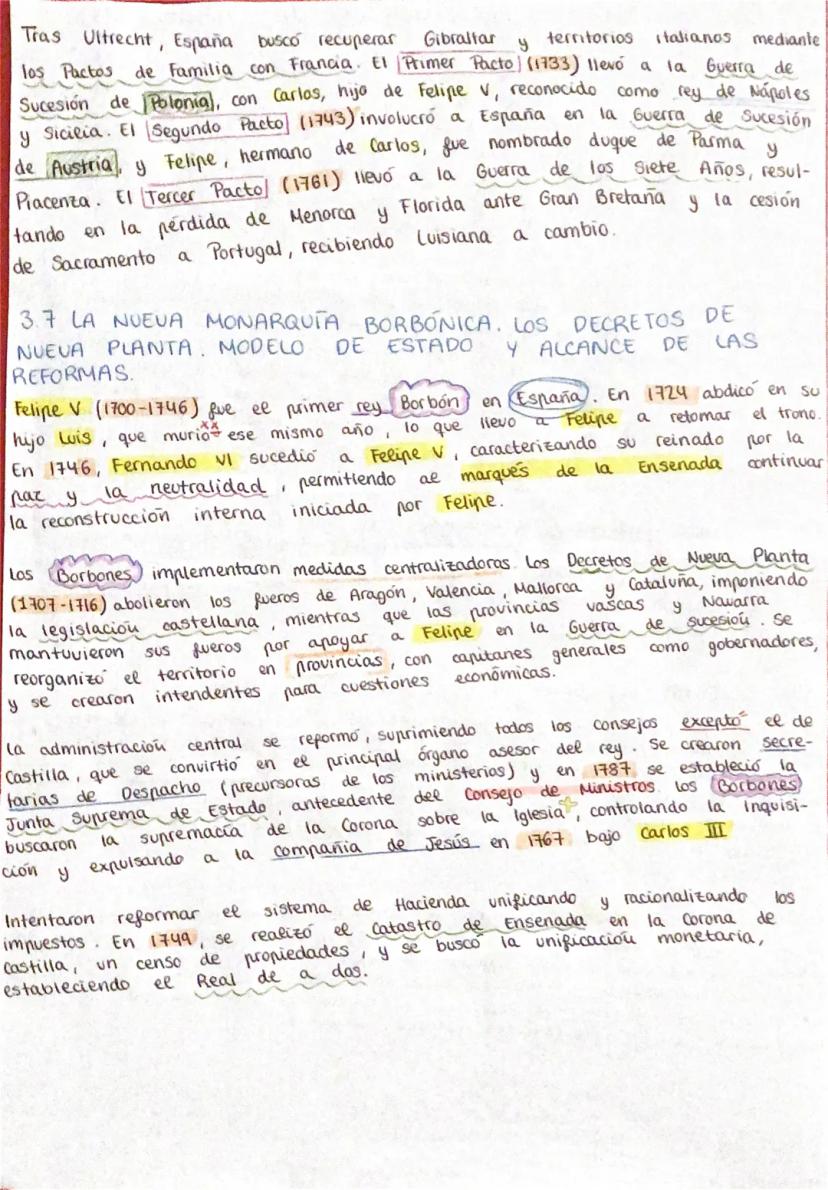 Tras Ultrecht, España buscó recuperar Gibraltar y territorios italianos mediante
los Pactos de Familia con Francia. El Primer Pacto (1733) llevó a la Guerra de
Sucesión de Polonia, con Carlos, hijo de Felipe V, reconocido como rey de Nápoles
y Sicilia. El Segundo Pacto (1743) involucró a España en la Guerra de Sucesión
de Austria, y Felipe, hermano de Carlos, fue nombrado duque de Parma y
Piacenza. El Tercer Pacto (1761) llevó a la Guerra de los Siete Años, resul-
tando en la pérdida de Menorca y Florida ante Gran Bretaña y la cesión
de Sacramento a Portugal, recibiendo Luisiana a cambio.
3.7 LA NUEVA MONARQUÍA BORBÓNICA. LOS DECRETOS DE
NUEVA PLANTA. MODELO DE ESTADO Y ALCANCE DE LAS
REFORMAS.
Felipe V (1700-1746) fue el primer rey Borbón en España. En 1724 abdicó en su
hijo Luis, que murió ese mismo año, lo que llevó a Felipe a retomar el trono.
En 1746, Fernando VI sucedió a Felipe V, caracterizando su reinado por la
paz y la neutralidad, permitiendo al marqués de la Ensenada continuar
la reconstrucción interna iniciada por Felipe.
Los Borbones implementaron medidas centralizadoras. Los Decretos de Nueva Planta
(1707-1716) abolieron los fueros de Aragón, Valencia, Mallorca y Cataluña, imponiendo
la legislación castellana, mientras que las provincias vascas y Navarra
mantuvieron sus fueros por apoyar a Felipe en la Guerra de sucesión. Se
reorganizó el territorio en provincias, con capitanes generales como gobernadores,
y se crearon intendentes para cuestiones económicas.
La administración central se reformó, suprimiendo todos los consejos excepto el de
Castilla, que se convirtió en el principal órgano asesor del rey. Se crearon secre-
tarías de Despacho (precursoras de los ministerios) y en 1787 se estableció la
Junta Suprema de Estado, antecedente del Consejo de Ministros. Los Borbones
buscaron la supremacía de la Corona sobre la Iglesia, controlando la Inquisi-
ción y expulsando a la compañía de Jesús en 1767 bajo Carlos III
Intentaron reformar el sistema de Hacienda unificando y racionalizando los
impuestos. En 1749, se realizó el Catastro de Ensenada en la Corona de
Castilla, un censo de propiedades, y se buscó la unificación monetaria,
estableciendo el Real de a dos.